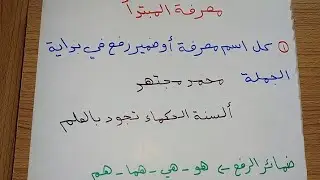 معرفة المبتدأ
① كل اسم معرفة أو ضمير رفع في بداية
الجملة محمد مجتهد
ألسنة الحكماء تجود بالعلم
ضمائر الرفع ← هو - هي - هما - هم